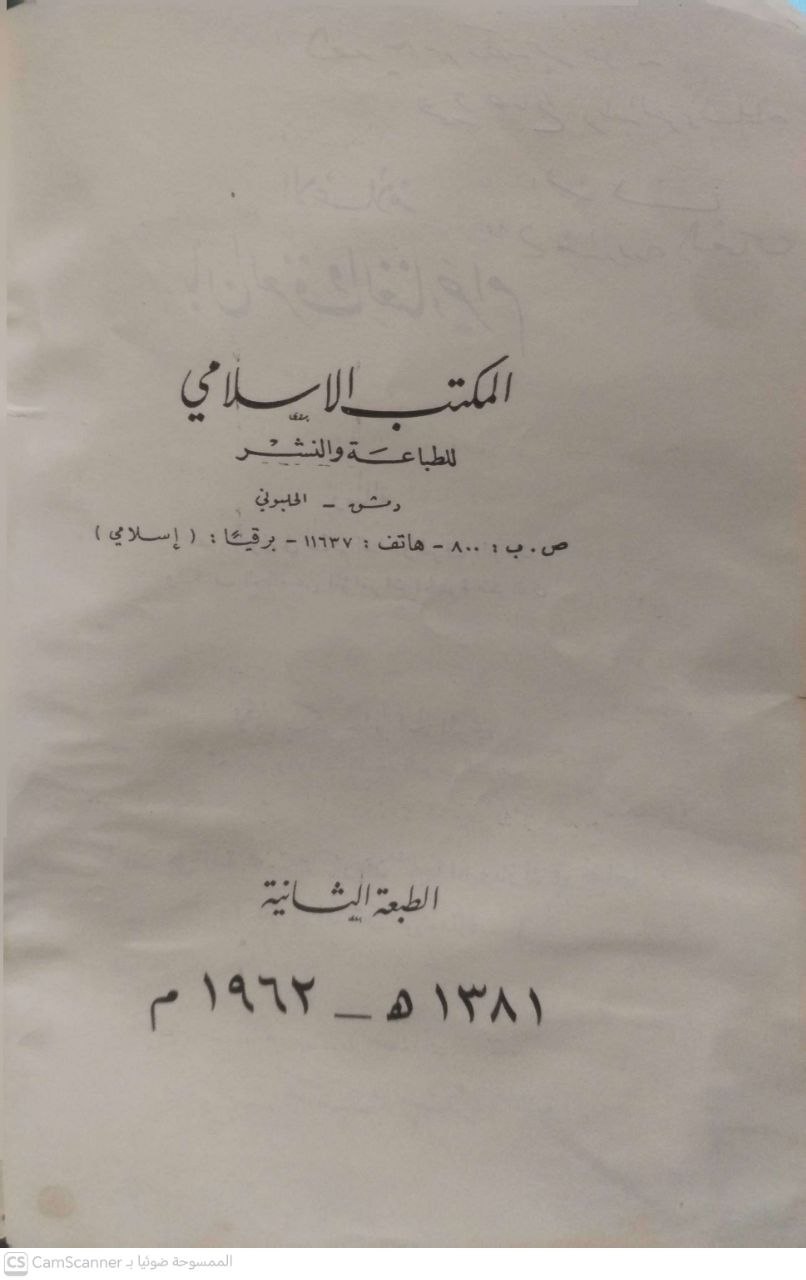 المكتب الإسلامي
للطباعة والنشر
دمشق - الحلبوني
ص.ب: ٨٠٠ - هاتف: ١١٦٣٧ - برقيًا: (إسلامي)
الطبعة الثانية
١٣٨١ هـ - ١٩٦٢ م
CS CamScanner الممسوحة ضوئيا بـ